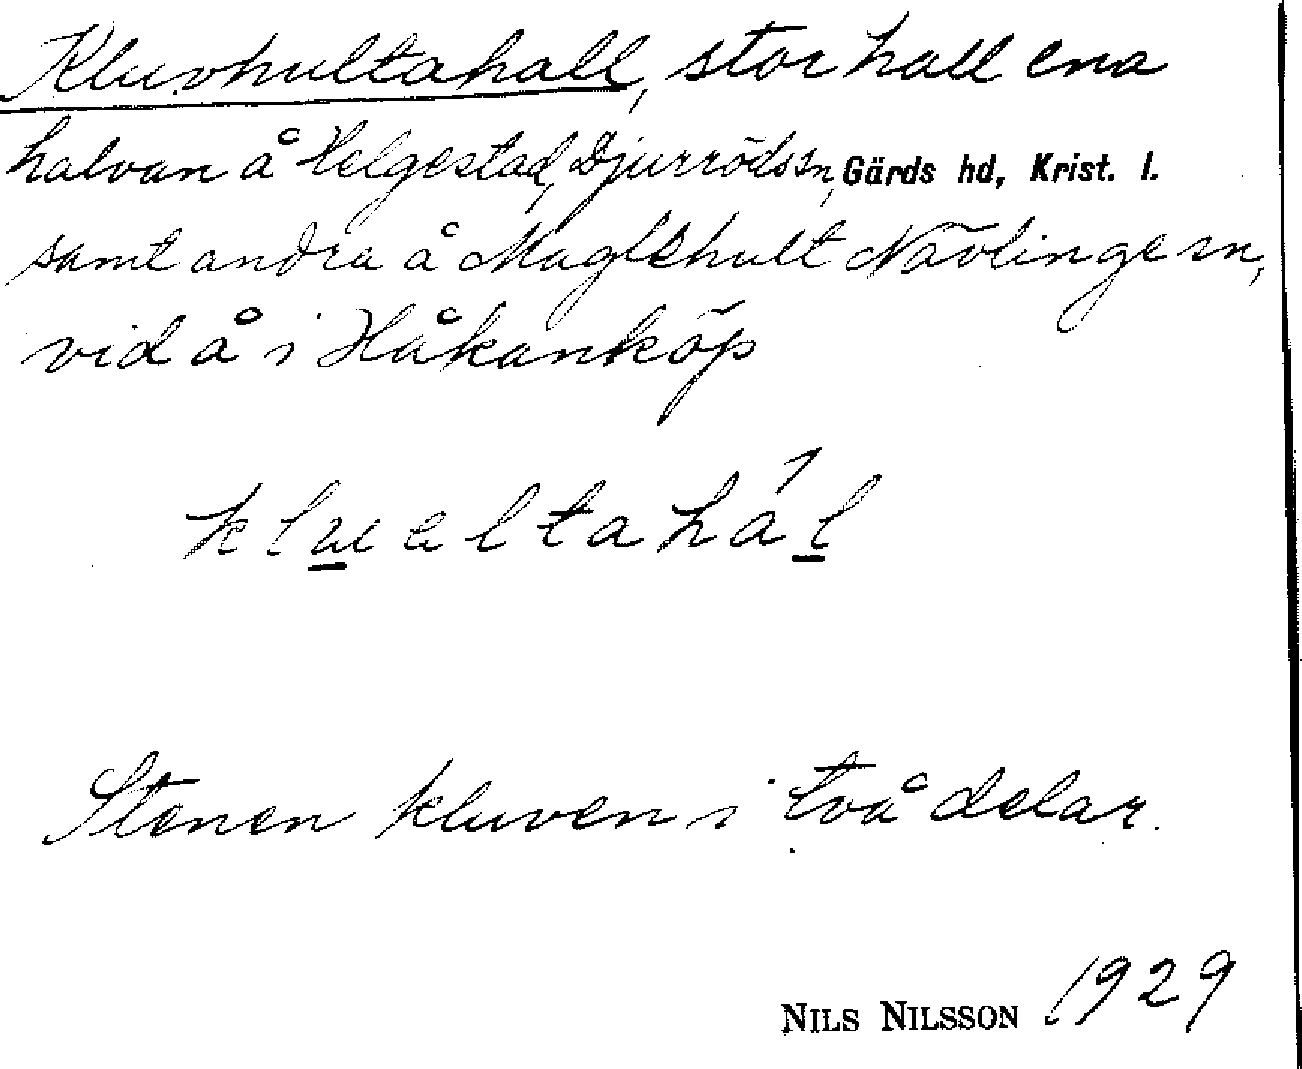 Kluvhultahall, stor hall ena
halvan å Helgestad, Djurröds sn, Gärds hd, Krist. l.
samt andra å Maglehult Nävlinge sn,
vid å i Håkanköp
klualtahál
Stenen kluven i två delar.
NILS NILSSON 1929